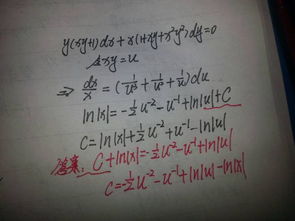 y(xy+1)dx+x(1+xy+x²y²)dy=0
令xy=u
⇒ dx/x=(1/u³+1/u²+1/u)du
ln|x|=-½u⁻²-u⁻¹+ln|u|+C
C=ln|x|+½u⁻²+u⁻¹-ln|u|
答案: C+ln|x|=-½u⁻²-u⁻¹+ln|u|
C=-½u⁻²-u⁻¹+ln|u|-ln|x|